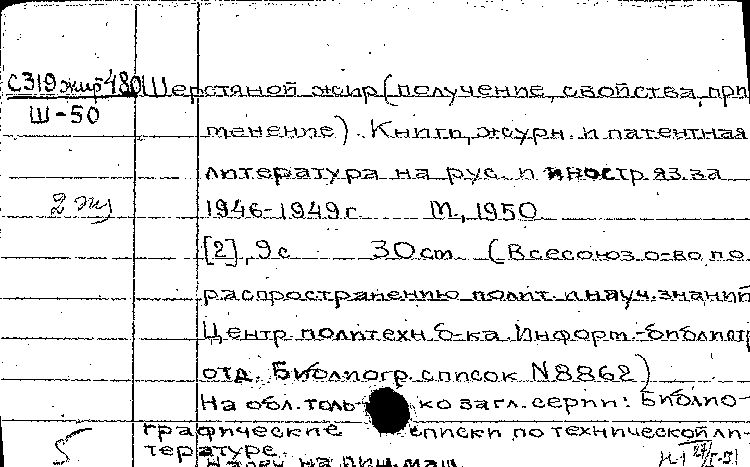 С319жир480 Шерстяной жир (получение, свойства, при
Ш-50
менение). Книги, журн. и патентная
литература на рус. и иностр яз. за
2 экз 1946-1949г М., 1950
[2], 9с 30см (Всесоюз о-во по
распространению полит. и науч. знаний
Центр политехн б-ка Информ.-библиогр
отд. Библиогр. список N8862)
На обл. толь ко загл. серии: Библио-
графические списки по технической ли-
тературе.
5
на пиш. маш.